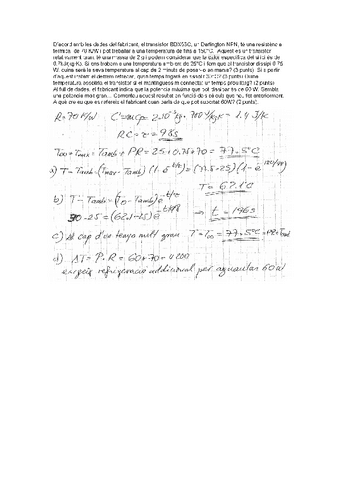 D'acord amb les dades del fabricant, el transistor BDX53C, un Darlington NPN, té una resistència
tèrmica de 70 K/W i pot treballar a una temperatura de fins a 150°C. Aquest és un transistor
relativament gran, té una massa de 2 g i podem considerar que la calor específica del silici és de
0,7kJ/(kg·K). Si ens trobem a una temperatura ambient de 25°C i fem que el transistor dissipi 0,75
W, quina serà la seva temperatura al cap de 2 minuts de posar-lo en marxa? (3 punts) Si a partir
d'aquest instant el deixem refredar, quin temps trigarà en
temperatura assolirà el transistor si el mantinguéssim connectat un temps prou llarg? (2 punts)
Al full de dades, el fabricant indica que la potència màxima que pot dissipar és de 60 W. Sembla
una potència molt gran... Comenteu aquest resultat en funció dels càlculs que heu fet anteriorment.
A què creieu que es refereix el fabricant quan parla de que pot suportar 60W? (2 punts).
R=70 K/W C=m·cp= 2·10⁻³kg·700 J/kgK = 1.4 J/K
RC = τ = 98s
T∞=Tmax=Tamb+PR=25+0.75*70=77.5°C
a) T-Tamb=(Tmax-Tamb)(1-e^(-t/τ))=(77.5-25)(1-e^(-120/98))
T=62.1°C
b) T-Tamb=(T0-Tamb)e^(-t/τ)
30-25=(62.1-25)e^(-t/98) → t=196s
c) Al cap d'un temps molt gran T=T∞=77.5°C
d) ΔT=P·R=60*70=4200
exigeix refrigeració addicional per aguantar 60W